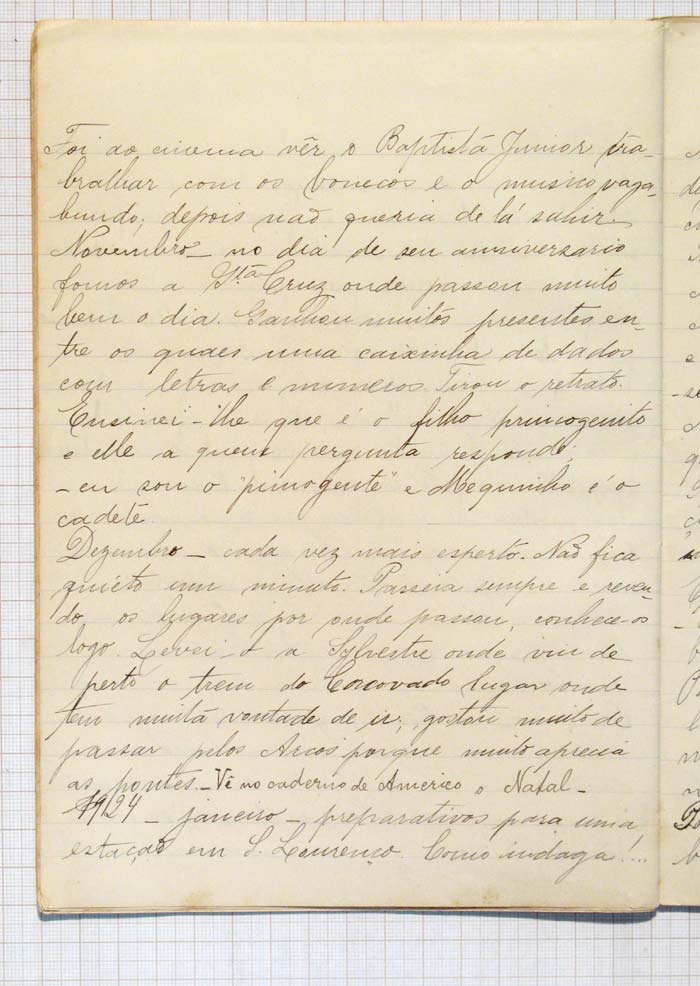 Foi ao cinema vêr o Baptista Junior tra-
bralhar com os bonecos e o musico vaga-
bundo; depois não queria de lá sahir.
Novembro - no dia de seu anniversario
fomos a Sta Cruz onde passou muito
bem o dia. Ganhou muitos presentes en-
tre os quaes uma caixinha de dados
com letras e numeros. Tirou o retrato.
Ensinei-lhe que é o filho primogenito
e elle a quem pergunta responde:
- eu sou o "pimogente" e Meguinho é o
cadete.
Dezembro - cada vez mais esperto. Não fica
quiéto um minuto. Passeia sempre e reven-
do os lugares por onde passou, conhece-os
logo. Levei-o a Sylvestre onde viu de
perto o trem do Corcovado lugar onde
tem muita vontade de ir; gostou muito de
passar pelos Arcos porque muito aprecia
as pontes. - Vê no caderno de Americo o Natal -
1924 - janeiro - preparativos para uma
estação em S. Lourenço. Como indaga!...